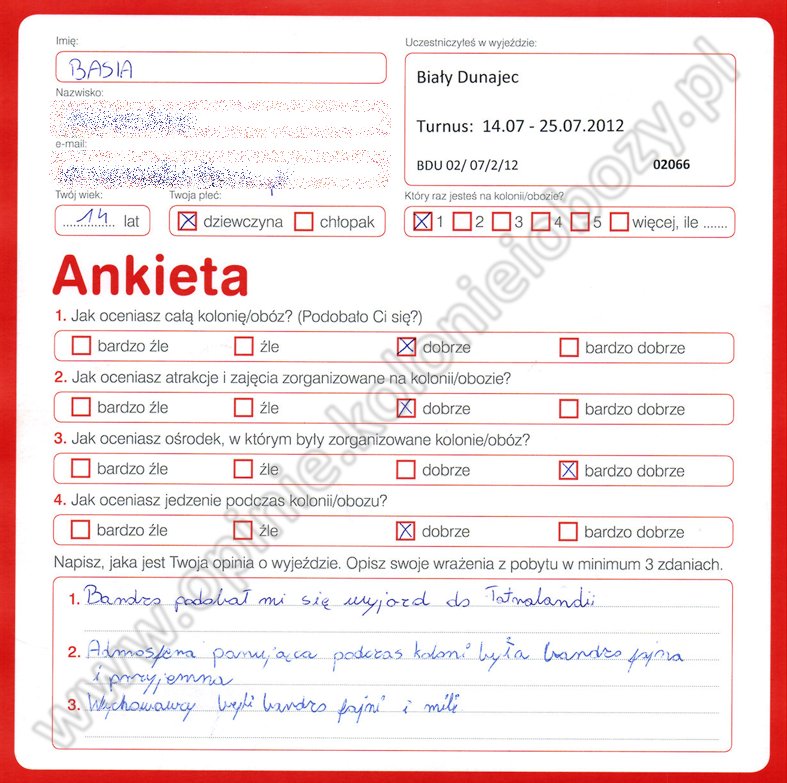 Imię:
BASIA
Uczestniczyłeś w wyjeździe:
Biały Dunajec
Turnus: 14.07 - 25.07.2012
BDU 02/ 07/2/12 02066
Nazwisko:
e-mail:
Twój wiek:
14 lat
Twoja płeć:
dziewczyna chłopak
Który raz jesteś na kolonii/obozie?
1 2 3 4 5 więcej, ile .......
Ankieta
1. Jak oceniasz całą kolonię/obóz? (Podobało Ci się?)
bardzo źle źle dobrze bardzo dobrze
2. Jak oceniasz atrakcje i zajęcia zorganizowane na kolonii/obozie?
bardzo źle źle dobrze bardzo dobrze
3. Jak oceniasz ośrodek, w którym były zorganizowane kolonie/obóz?
bardzo źle źle dobrze bardzo dobrze
4. Jak oceniasz jedzenie podczas kolonii/obozu?
bardzo źle źle dobrze bardzo dobrze
Napisz, jaka jest Twoja opinia o wyjeździe. Opisz swoje wrażenia z pobytu w minimum 3 zdaniach.
1. Bardzo podobał mi się wyjazd do Tatralandii
2. Admosfera panująca podczas koloni była bardzo fajna
i przyjemna
3. Wychowawcy byli bardzo fajni i mili
www.opinie.kolonieiobozy.pl